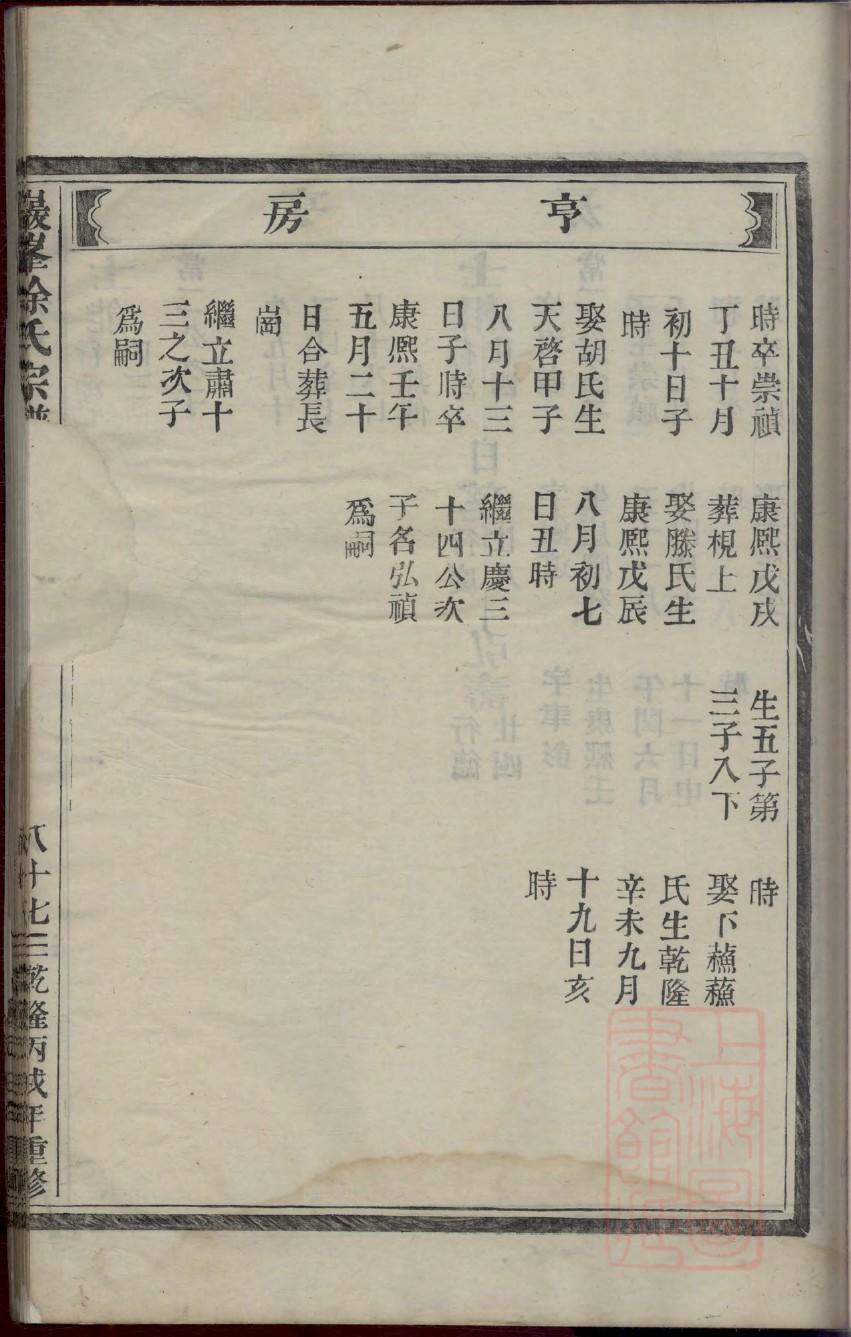 亨房
時卒崇禎
丁丑十月
初十日子
時
娶胡氏生
天啓甲子
八月十三
日子時卒
康熙壬午
五月二十
日合葬長
崗
繼立肅十
三之次子
爲嗣
康熙戊戌
葬梘上
娶滕氏生
康熙戊辰
八月初七
日丑時
繼立慶三
十四公次
子名弘禎
爲嗣
生五子第
三子入下
時
娶下蘓蘓
氏生乾隆
辛未九月
十九日亥
時
巖峯徐氏宗譜
乾隆丙戌年重修
上海圖書館藏